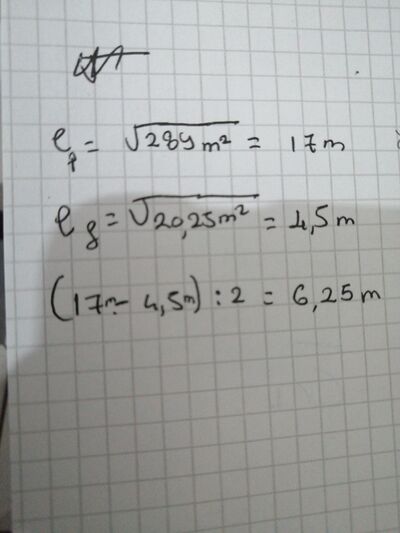 ℓp = √289 m² = 17 m
ℓg = √20,25 m² = 4,5 m
(17m - 4,5m) : 2 = 6,25 m